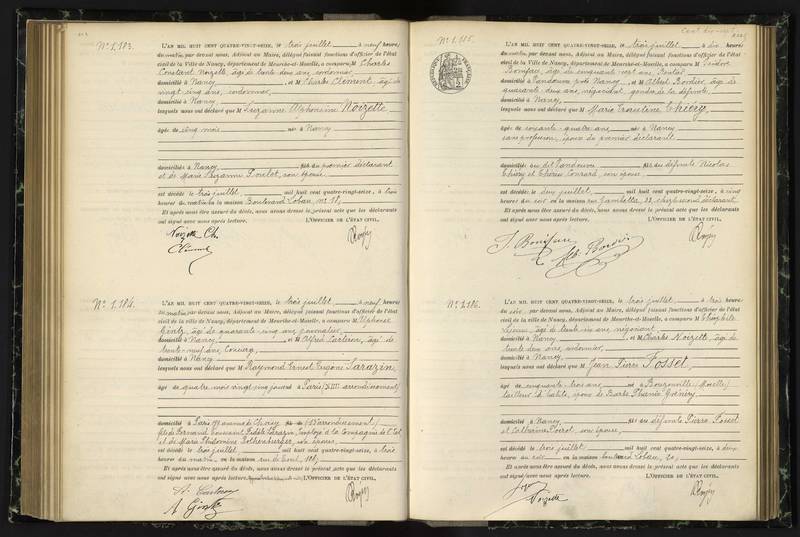 N° 1.183.
L'AN MIL HUIT CENT QUATRE-VINGT-SEIZE, le trois juillet, à neuf heures
du matin, par devant nous, Adjoint au Maire, délégué faisant fonctions d'officier de l'état
civil de la Ville de Nancy, département de Meurthe-et-Moselle, a comparu M Charles
Constant Noizette, âgé de trente deux ans, cordonnier,
domicilié à Nancy, et M Charles Clément, âgé de
vingt cinq ans, cordonnier,
domicilié à Nancy,
lesquels nous ont déclaré que M Suzanne Alphonsine Noizette
âgée de cinq mois née à Nancy
domiciliée à Nancy, fille du premier déclarant
et de Marie Suzanne son épouse
est décédée le trois juillet, mil huit cent quatre-vingt-seize, à trois
heures du matin en la maison Boulevard Lobau, n° 18,
Et après nous être assuré du décès, nous avons dressé le présent acte que les déclarants
ont signé avec nous après lecture. L'OFFICIER DE L'ÉTAT CIVIL,
Noizette Ch.
Clément
N° 1.184.
L'AN MIL HUIT CENT QUATRE-VINGT-SEIZE, le trois juillet, à neuf heures
du matin, par devant nous, Adjoint au Maire, délégué faisant fonctions d'officier de l'état
civil de la ville de Nancy, département de Meurthe-et-Moselle, a comparu M Alphonse
âgé de quarante cinq ans, journalier,
domicilié à Nancy, et M Alfred âgé de
trente neuf ans,
domicilié à Nancy
lesquels nous ont déclaré que M Raymond Ernest Eugène Sarazin,
âgé de quatre mois vingt cinq jours né à Paris (XIII arrondissement)
domicilié à Paris avenue de Choisy fils de (13e arrondissement)
fils de Fernand Sarazin, employé à la Compagnie de l'Est
et de Marie Philomène Rothenburger, son épouse,
est décédé le trois juillet, mil huit cent quatre-vingt-seize, à trois
heures du matin, en la maison rue de Toul,
Et après nous être assuré du décès, nous avons dressé le présent acte que les déclarants
ont signé avec nous après lecture. L'OFFICIER DE L'ÉTAT CIVIL,
N° 1.185.
L'AN MIL HUIT CENT QUATRE-VINGT-SEIZE, le trois juillet, à dix heures
du matin, par devant nous, Adjoint au Maire, délégué faisant fonctions d'officier de l'état
civil de la Ville de Nancy, département de Meurthe-et-Moselle, a comparu M Isidore
Boniface, âgé de cinquante sept ans, rentier
domicilié à Vandœuvre près Nancy, et M Albert Bordier, âgé de
quarante deux ans, négociant, gendre de la défunte,
domicilié à Nancy,
lesquels nous ont déclaré que M Marie Thiéry,
âgée de soixante quatre ans, née à Nancy
sans profession, épouse du premier déclarant
domiciliée au dit Vandœuvre fille de défunts Nicolas
Thiéry et Thérèse Conrard, son épouse,
est décédée le deux juillet, mil huit cent quatre-vingt-seize, à cinq
heures du soir en la maison rue Gambetta, 22, chez le second déclarant
Et après nous être assuré du décès, nous avons dressé le présent acte que les déclarants
ont signé avec nous après lecture. L'OFFICIER DE L'ÉTAT CIVIL,
I. Boniface
Alb. Bordier
N° 1.186.
L'AN MIL HUIT CENT QUATRE-VINGT-SEIZE, le trois juillet, à trois heures
du soir, par devant nous, Adjoint au Maire, délégué faisant fonctions d'officier de l'état
civil de la ville de Nancy, département de Meurthe-et-Moselle, a comparu M
âgé de trente six ans, négociant,
domicilié à Nancy, et M Charles Noizette, âgé de
trente deux ans, cordonnier,
domicilié à Nancy,
lesquels nous ont déclaré que M Jean Pierre Fosset,
âgé de cinquante trois ans, né à Bouzonville (Moselle)
tailleur d'habits, époux de Barbe
domicilié à Nancy, fils de défunts Pierre Fosset
et Catherine Poirot, son épouse,
est décédé le trois juillet, mil huit cent quatre-vingt-seize, à deux
heures du soir en la maison boulevard Lobau, 20,
Et après nous être assuré du décès, nous avons dressé le présent acte que les déclarants
ont signé avec nous après lecture. L'OFFICIER DE L'ÉTAT CIVIL,
Noizette